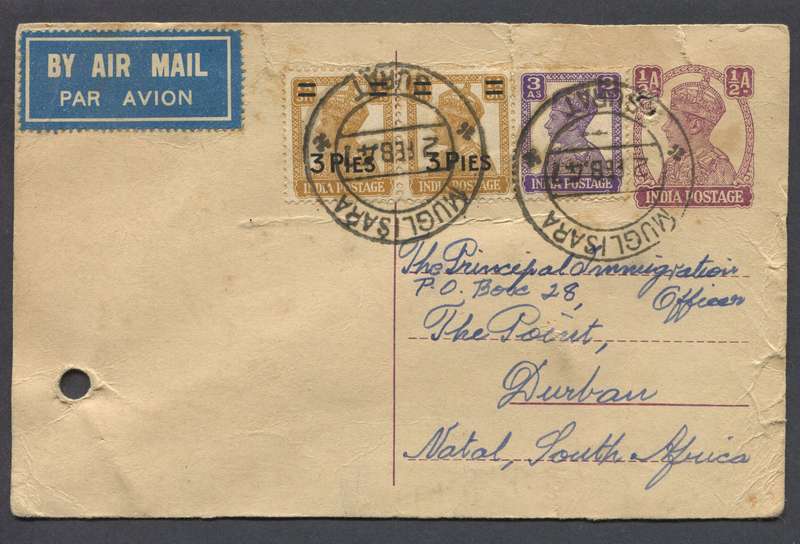 BY AIR MAIL
PAR AVION
3 PIES
INDIA POSTAGE
3 PIES
INDIA POSTAGE
3 AS
INDIA POSTAGE
½A
½A
INDIA POSTAGE
MUGLISARA
SURAT
2 FEB 47
MUGLISARA
SURAT
FEB 47
The Principal Immigration
Officer
P.O. Box 28,
The Point,
Durban
Natal, South Africa